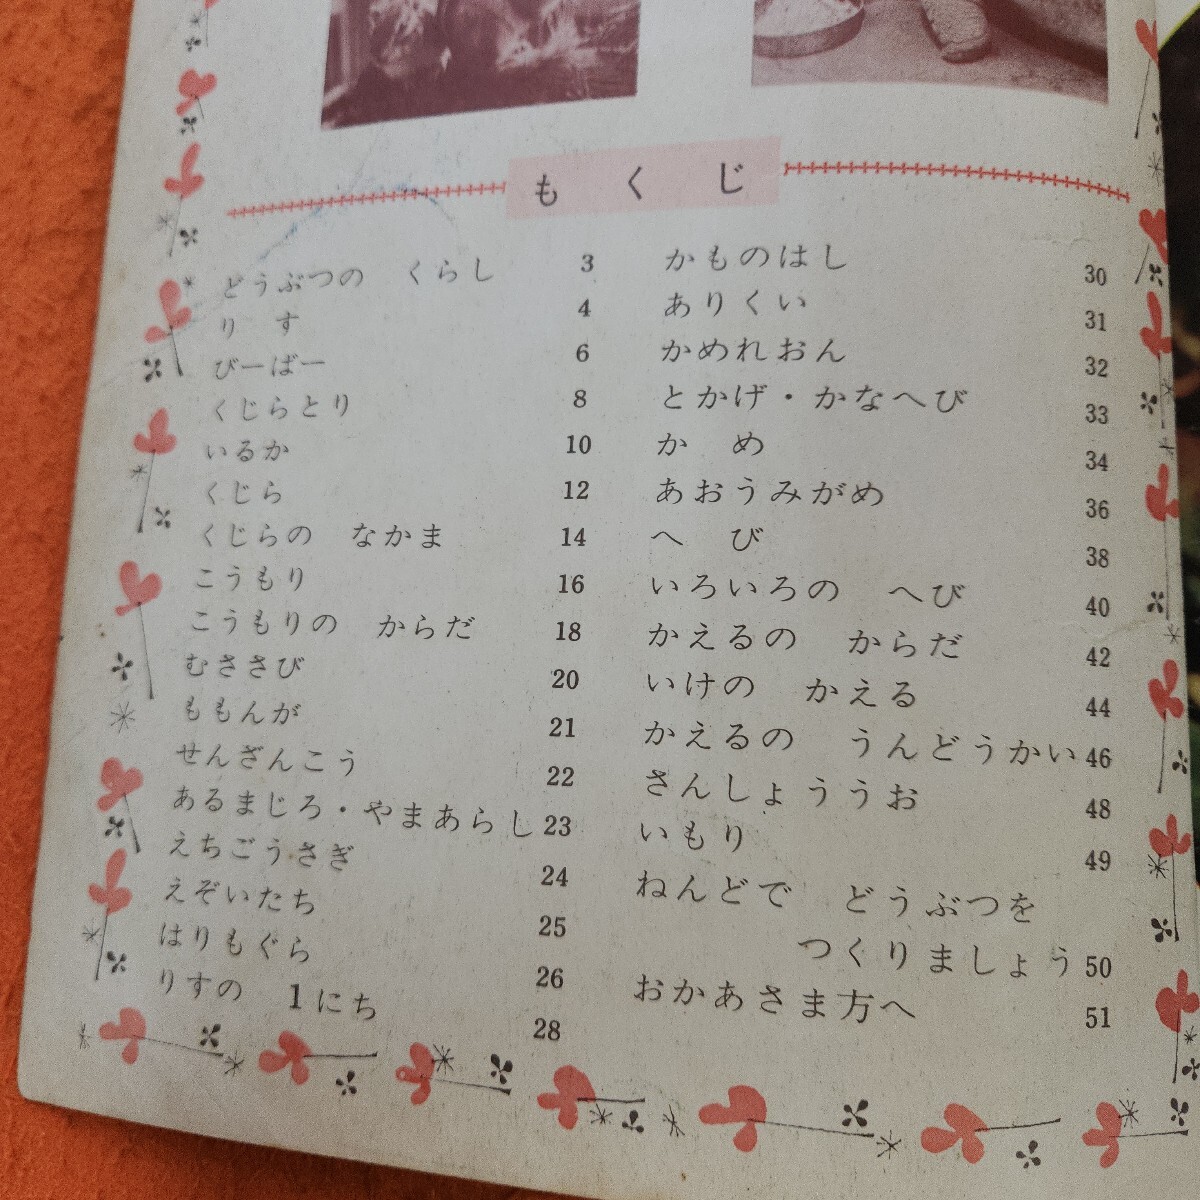 もくじ
どうぶつの　くらし 3
りす 4
びーばー 6
くじらとり 8
いるか 10
くじら 12
くじらの　なかま 14
こうもり 16
こうもりの　からだ 18
むささび 20
ももんが 21
せんざんこう 22
あるまじろ・やまあらし 23
えちごうさぎ 24
えぞいたち 25
はりもぐら 26
りすの　1にち 28
かものはし 30
ありくい 31
かめれおん 32
とかげ・かなへび 33
かめ 34
あおうみがめ 36
へび 38
いろいろの　へび 40
かえるの　からだ 42
いけの　かえる 44
かえるの　うんどうかい 46
さんしょううお 48
いもり 49
ねんどで　どうぶつを
つくりましょう 50
おかあさま方へ 51